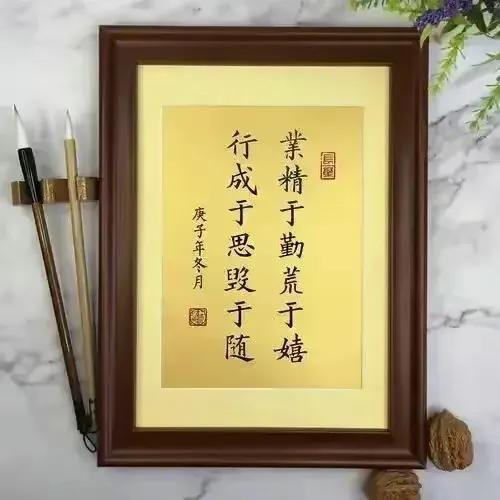 業精于勤荒于嬉
行成于思毁于随
庚子年冬月